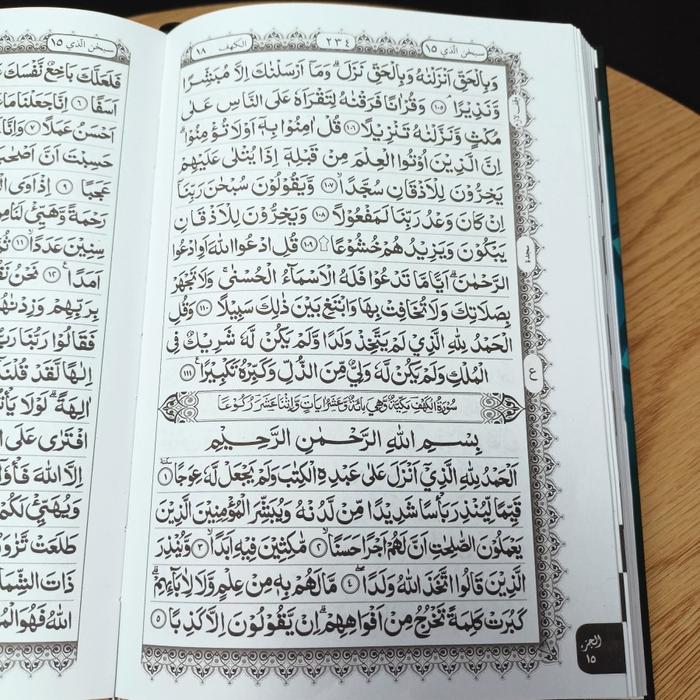 سبحٰن الذي ١٥
٢٣٤
الكهف ١٨
وَبِالْحَقِّ اَنْزَلْنٰهُ وَبِالْحَقِّ نَزَلَ ۗ وَمَآ اَرْسَلْنٰكَ اِلَّا مُبَشِّرًا
وَّنَذِيْرًا ۘ ١٠٥ وَقُرْاٰنًا فَرَقْنٰهُ لِتَقْرَاَهٗ عَلَى النَّاسِ عَلٰى
مُكْثٍ وَّنَزَّلْنٰهُ تَنْزِيْلًا ١٠٦ قُلْ اٰمِنُوْا بِهٖٓ اَوْ لَا تُؤْمِنُوْا ۗ
اِنَّ الَّذِيْنَ اُوْتُوا الْعِلْمَ مِنْ قَبْلِهٖٓ اِذَا يُتْلٰى عَلَيْهِمْ
يَخِرُّوْنَ لِلْاَذْقَانِ سُجَّدًا ۙ ١٠٧ وَّيَقُوْلُوْنَ سُبْحٰنَ رَبِّنَآ
اِنْ كَانَ وَعْدُ رَبِّنَا لَمَفْعُوْلًا ١٠٨ وَيَخِرُّوْنَ لِلْاَذْقَانِ
يَبْكُوْنَ وَيَزِيْدُهُمْ خُشُوْعًا ۩ ١٠٩ قُلِ ادْعُوا اللّٰهَ اَوِ ادْعُوا
الرَّحْمٰنَ ۗ اَيًّا مَّا تَدْعُوْا فَلَهُ الْاَسْمَاۤءُ الْحُسْنٰى ۚ وَلَا تَجْهَرْ
بِصَلَاتِكَ وَلَا تُخَافِتْ بِهَا وَابْتَغِ بَيْنَ ذٰلِكَ سَبِيْلًا ١١٠ وَقُلِ
الْحَمْدُ لِلّٰهِ الَّذِيْ لَمْ يَتَّخِذْ وَلَدًا وَّلَمْ يَكُنْ لَّهٗ شَرِيْكٌ فِى
الْمُلْكِ وَلَمْ يَكُنْ لَّهٗ وَلِيٌّ مِّنَ الذُّلِّ وَكَبِّرْهُ تَكْبِيْرًا ١١١
سُوْرَةُ الْكَهْفِ مَكِّيَّةٌ وَّهِيَ مِائَةٌ وَّعَشْرُ اٰيَاتٍ وَّاثْنَتَا عَشَرَ رُكُوْعًا
بِسْمِ اللّٰهِ الرَّحْمٰنِ الرَّحِيْمِ
اَلْحَمْدُ لِلّٰهِ الَّذِيْٓ اَنْزَلَ عَلٰى عَبْدِهِ الْكِتٰبَ وَلَمْ يَجْعَلْ لَّهٗ عِوَجًا ١
قَيِّمًا لِّيُنْذِرَ بَأْسًا شَدِيْدًا مِّنْ لَّدُنْهُ وَيُبَشِّرَ الْمُؤْمِنِيْنَ الَّذِيْنَ
يَعْمَلُوْنَ الصّٰلِحٰتِ اَنَّ لَهُمْ اَجْرًا حَسَنًا ۙ ٢ مَّاكِثِيْنَ فِيْهِ اَبَدًا ۙ ٣ وَّيُنْذِرَ
الَّذِيْنَ قَالُوا اتَّخَذَ اللّٰهُ وَلَدًا ٤ مَا لَهُمْ بِهٖ مِنْ عِلْمٍ وَّلَا لِاٰبَاۤىِٕهِمْ ۗ
كَبُرَتْ كَلِمَةً تَخْرُجُ مِنْ اَفْوَاهِهِمْ ۗ اِنْ يَّقُوْلُوْنَ اِلَّا كَذِبًا ٥
سجدة
ع
الجزء
١٥
سبحٰن الذي ١٥
فَلَعَلَّكَ بَاخِعٌ نَّفْسَكَ
اَسَفًا ٦ اِنَّا جَعَلْنَا مَا
اَحْسَنُ عَمَلًا ٧ وَاِنَّا
حَسِبْتَ اَنَّ اَصْحٰبَ
عَجَبًا ٩ اِذْ اَوَى
رَحْمَةً وَّهَيِّئْ لَنَا مِنْ
سِنِيْنَ عَدَدًا ١١
اَمَدًا ١٢ نَحْنُ
بِرَبِّهِمْ وَزِدْنٰهُمْ
فَقَالُوْا رَبُّنَا رَبُّ
اِلٰهًا لَّقَدْ قُلْنَآ
اٰلِهَةً ۗ لَوْلَا
افْتَرٰى عَلَى
اِلَّا اللّٰهَ فَأْوٗٓا
وَيُهَيِّئْ لَكُمْ
طَلَعَتْ تَّزٰوَرُ
ذَاتَ الشِّمَالِ
اللّٰهُ فَهُوَ